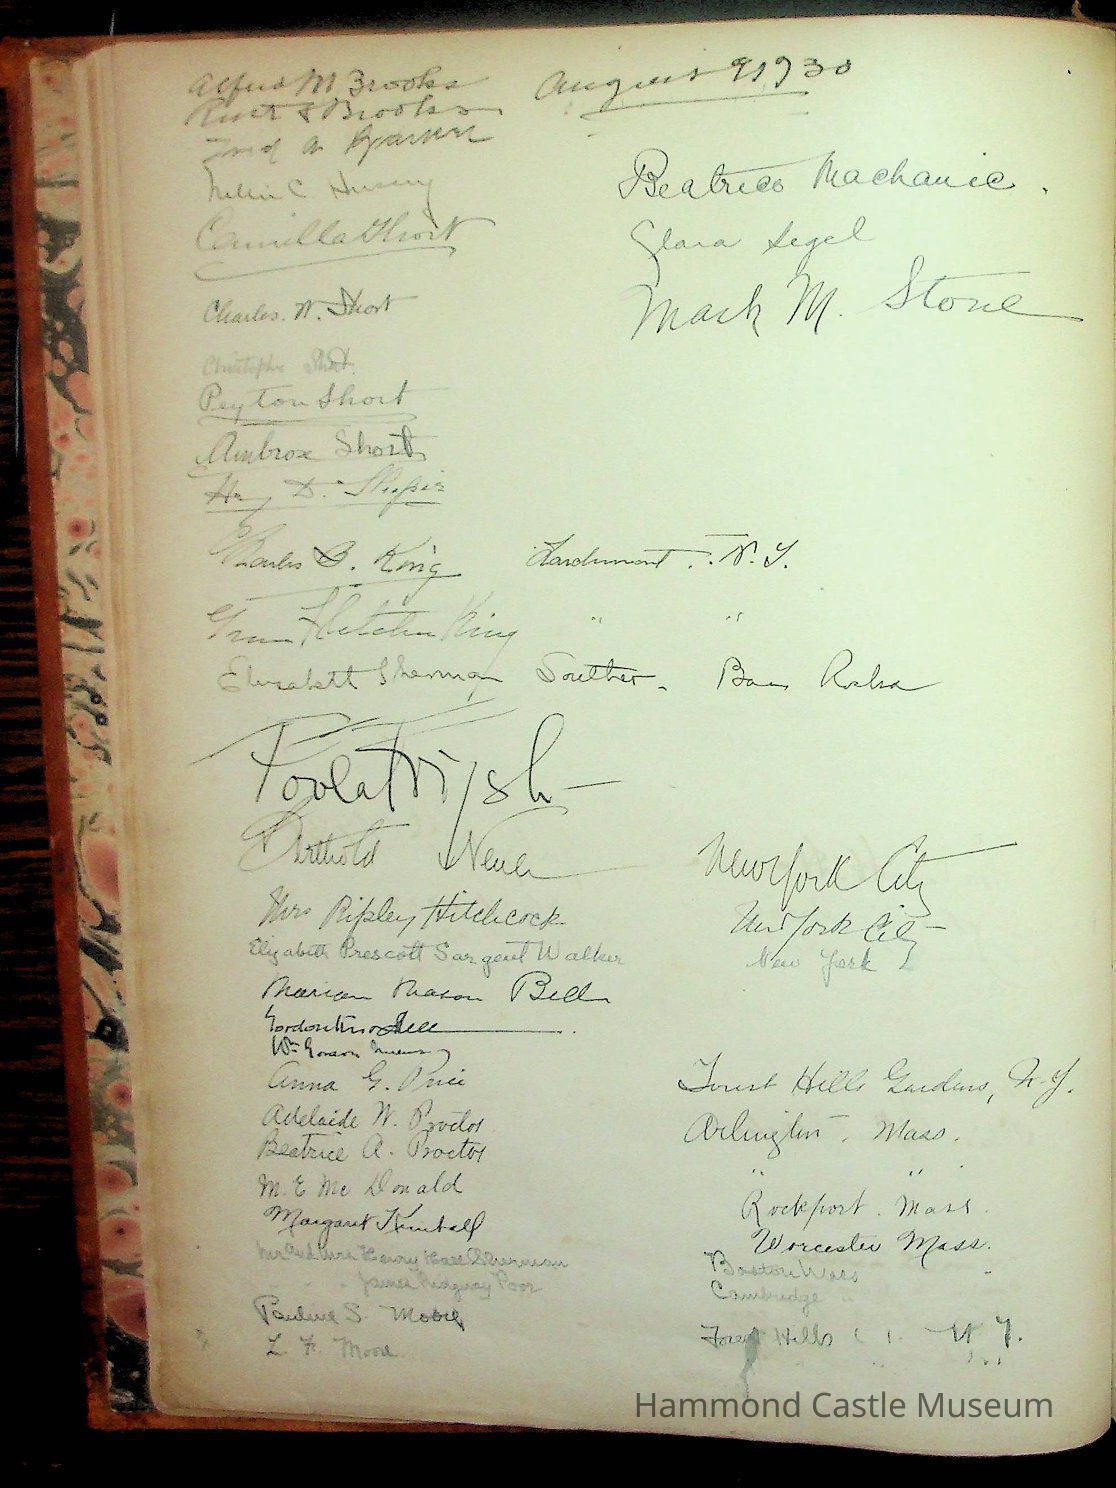 Alfred M Brooks August 9 1930
Ruth S Brooks
Fred A
C
Beatrice Machanic.
Camilla Short
Clara Segel
Charles. W. Short
Mark M. Stone
Christopher Short.
Peyton Short
Ambrose Short
D.
Charles B. King Larchmont, N.Y.
Fletcher King " "
Elizabeth Sherman Souther. Rosha
Berthold Neuer New York City
Mrs Ripley Hitchcock New York City
Elizabeth Prescott Sargent Walker New York
Marian Mason Bell
Gordon Knox Bell
Wm Gordon
Anna G. Price Forest Hills Gardens, N.Y.
Adelaide W. Proctor Arlington, Mass.
Beatrice A. Proctor " "
M. E Mc Donald Rockport. Mass.
Margaret Kimball Worcester Mass.
Mr and Mrs Henry Hall Sherman Boston Mass
" " " James Ridgway Poor Cambridge "
Pauline S. Moore Forest Hills N Y.
L. F. Moore " "
Hammond Castle Museum